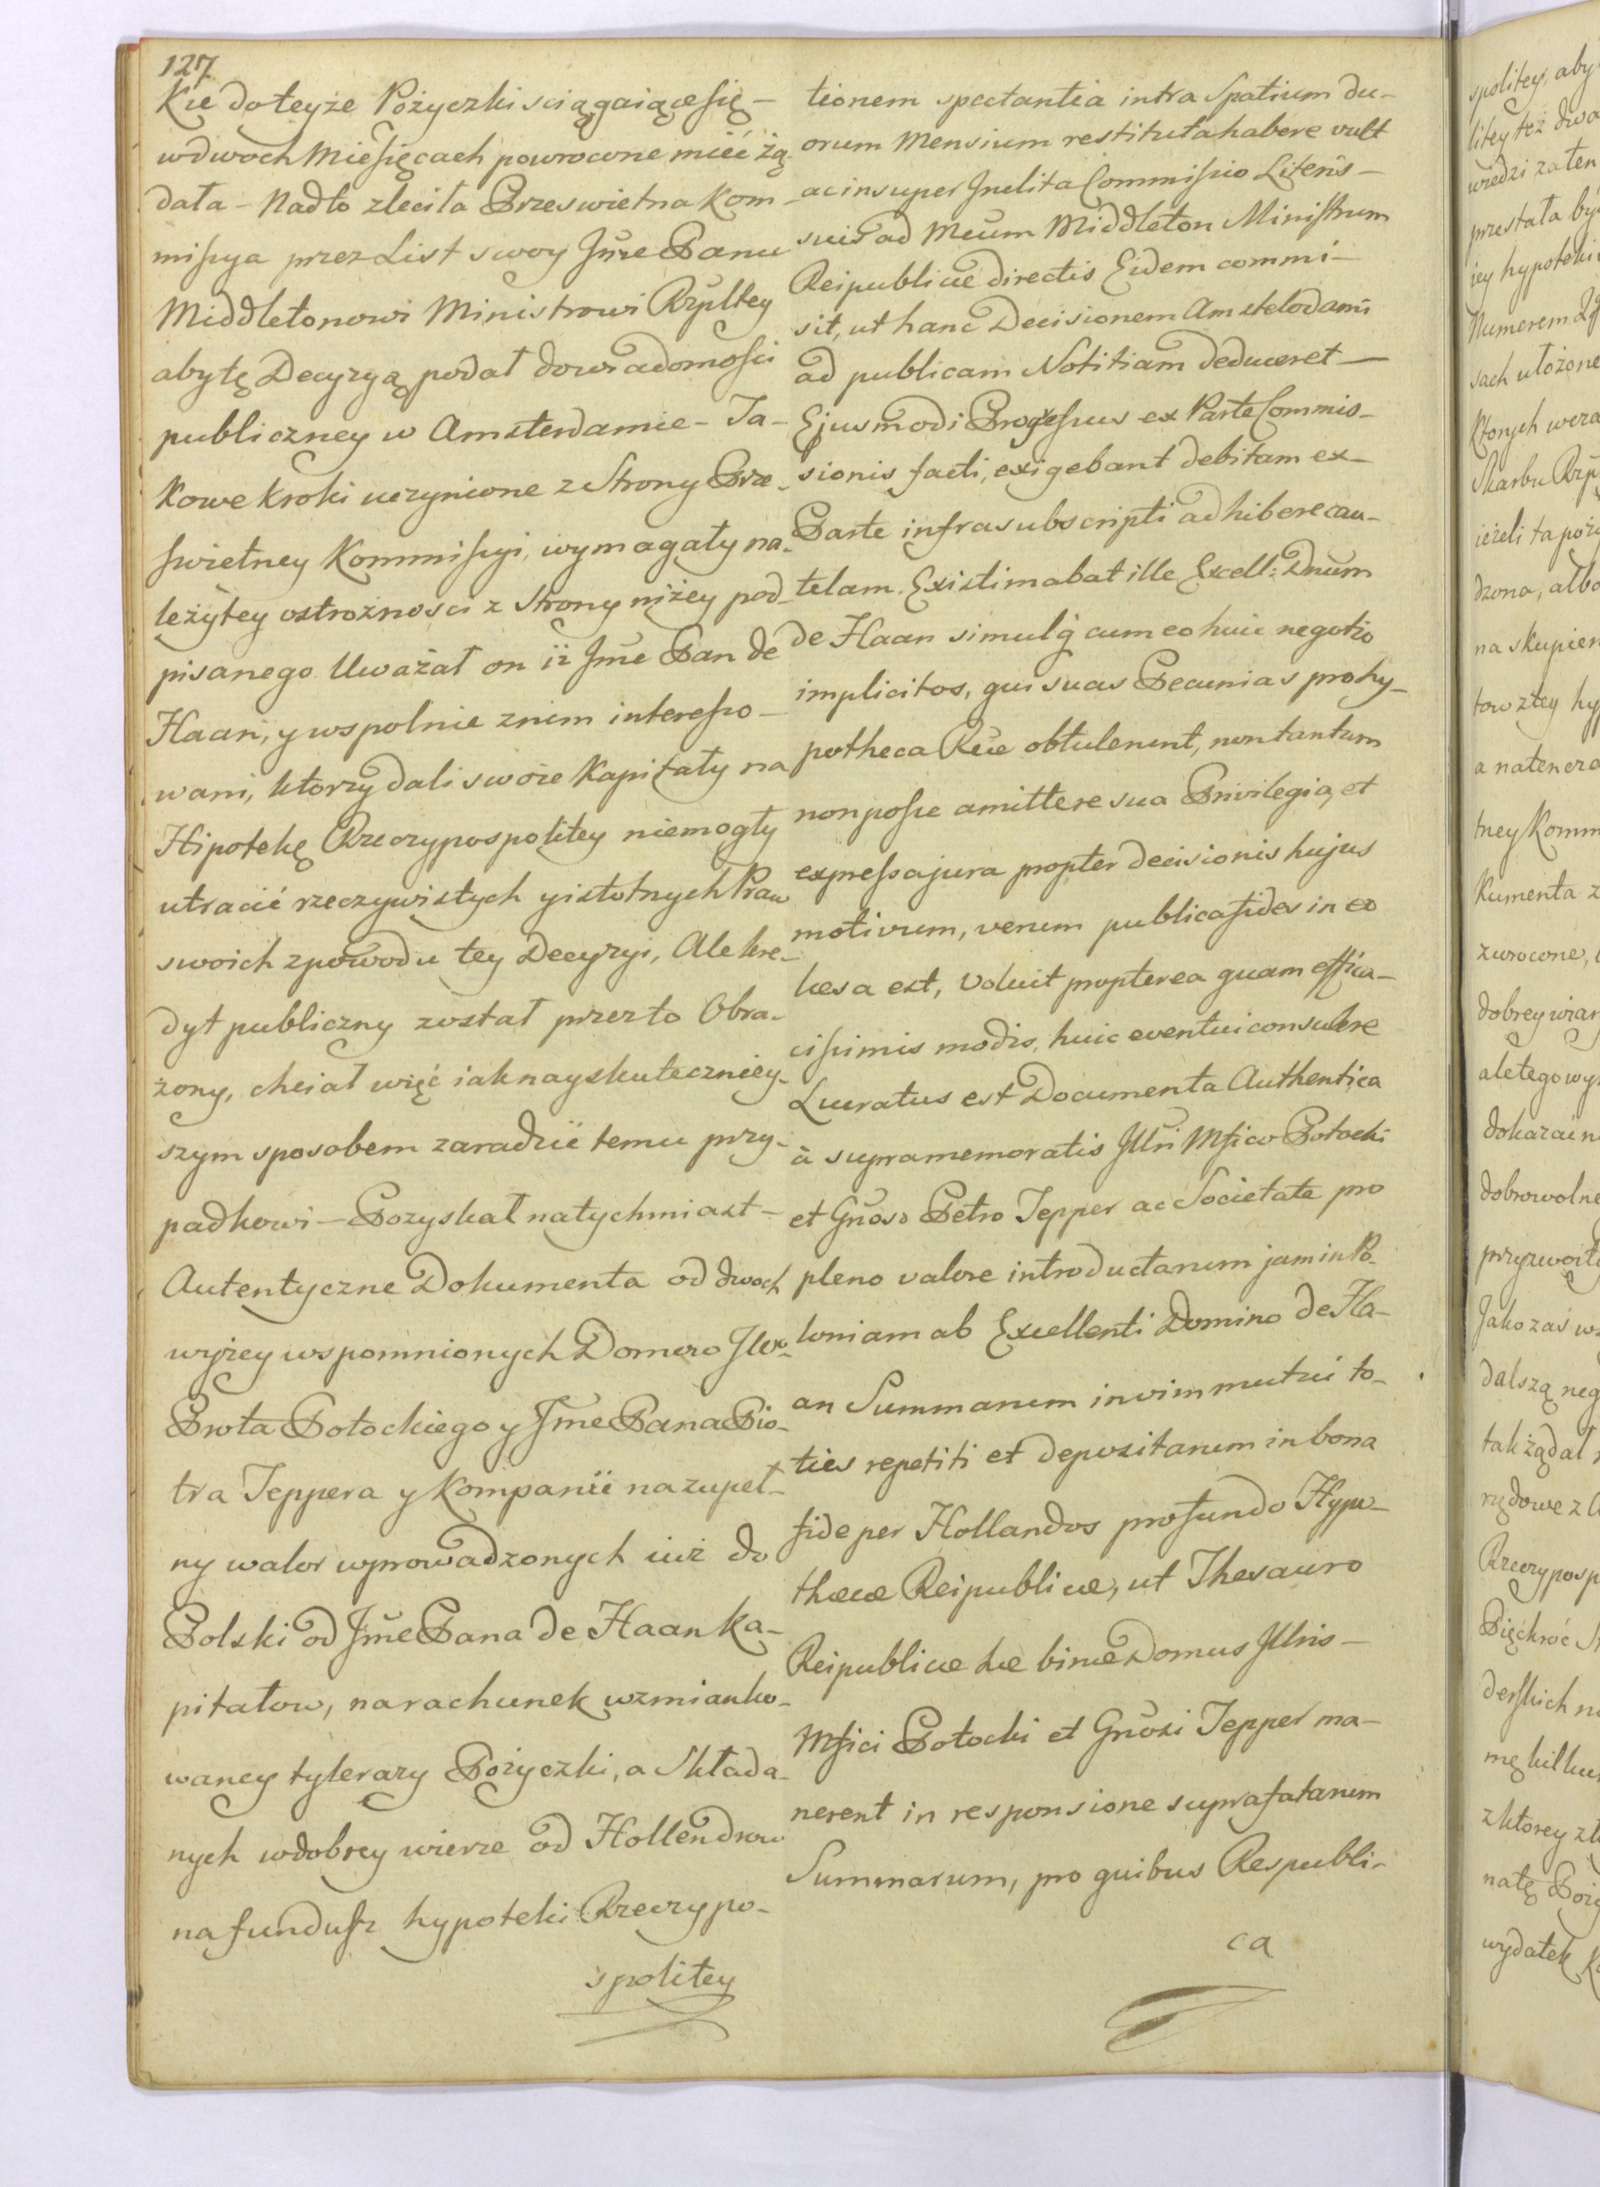 127
Kie do teyże Pożyczki sciągaiące się –
w dwoch Miesięcach powrocone mieć żą-
dała – Nadto zleciła Przeswietna Kom-
missya przez List swoy Jmće Panu
Middletonowi Ministrowi Rzpltey
aby tę Decyzyą podał do wiadomości
publiczney w Amszterdamie – Ta-
kowe kroki uczynione z Strony Prze-
świetney Kommissyi, wymagały na-
leżytey ostrożnosci z Strony niżey pod-
pisanego Uważał on iż Jmć Pan de
Haan, y wspolnie z nim interesso-
wani, ktorzy dali swoie Kapitały na
Hipotekę Rzeczypospolitey niemogły
utracić rzeczywistych y istotnych Praw
swoich z powodu tey Decyzyi, Ale kre-
dyt publiczny został przez to Obra-
żony, chciał więc iak nayskuteczniey-
szym sposobem zaradzić temu przy-
padkowi – Pozyskał natychmiast –
Autentyczne Dokumenta od dwoch
wyżey wspomnionych Domow
Prota Potockiego y Jmć Pana Pio-
tra Teppera y Kompanii na zupeł-
ny walor wprowadzonych iuż do
Polski od Jmć Pana de Haan ka-
pitałow, na rachunek wzmianko-
waney tylerazy Pożyczki, a składa-
nych w dobrey wierze od Hollendrow
na fundusz hypoteki Rzeczypo-
spolitey
tionem spectantia intra Spatium du-
orum Mensium restituta habere vult
ac insuper Inclita Commissio Literis –
suis ad Mcum Middleton Ministrum
Reipublicæ directis Eidem commi-
sit, ut hanc Decisionem Amstelodami
ad publicam Notitiam deduceret –
Ejusmodi Progressus ex Parte Commis-
sionis facti, exigebant debitam ex –
Parte infrasubscripti adhibere cau-
telam. Existimabat ille Excell: Dnum
de Haan simulq cum eo huic negotio
implicitos, qui suas Pecunias pro hy-
potheca Rcæ obtulerunt, non tantum
non posse amittere sua Privilegia, et
expressa jura propter decisionis hujus
motivum, verum publica fides in eo
læsa est, Voluit propterea quam effica-
cissimis modis, huic eventui consulere
Lucratus est Documenta Authentica
à supramemoratis Illri Mfico Potocki
et Gnoso Petro Tepper ac Societate pro
pleno valore introductarum jam in Po-
loniam ab Excellenti Domino de Ha-
an Summarum in vim mutui to-
ties repetiti et depositarum in bona
fide per Hollandos pro fundo Hypo-
thecæ Reipublicæ, ut Thesauro
Reipublicæ hæ binæ Domus Illris –
Mfici Potocki et Gnosi Tepper ma-
nerent in responsione suprafatarum
Summarum, pro quibus Respubli-
ca
spolitey, aby
litey też dwa
wiedzi za ten
przestała być
iey hypoteki
Numerem
sach ułożone
Ktorych wcza
Skarbu Rzp
ieżeli ta poży
dzona, albo
na skupien
tow z tey hy
a natencza
tney Komm
kumenta z
zwrocone,
dobrey wiar
ale tego wy
dokazać n
dobrowolne
przyzwoity
Jako zaś w
dalszą neg
tak żądał
rzędowe z
Rzeczyposp
Pięćkroć
derskich n
mę kilku
z ktorey
na tę Poży
wydatek